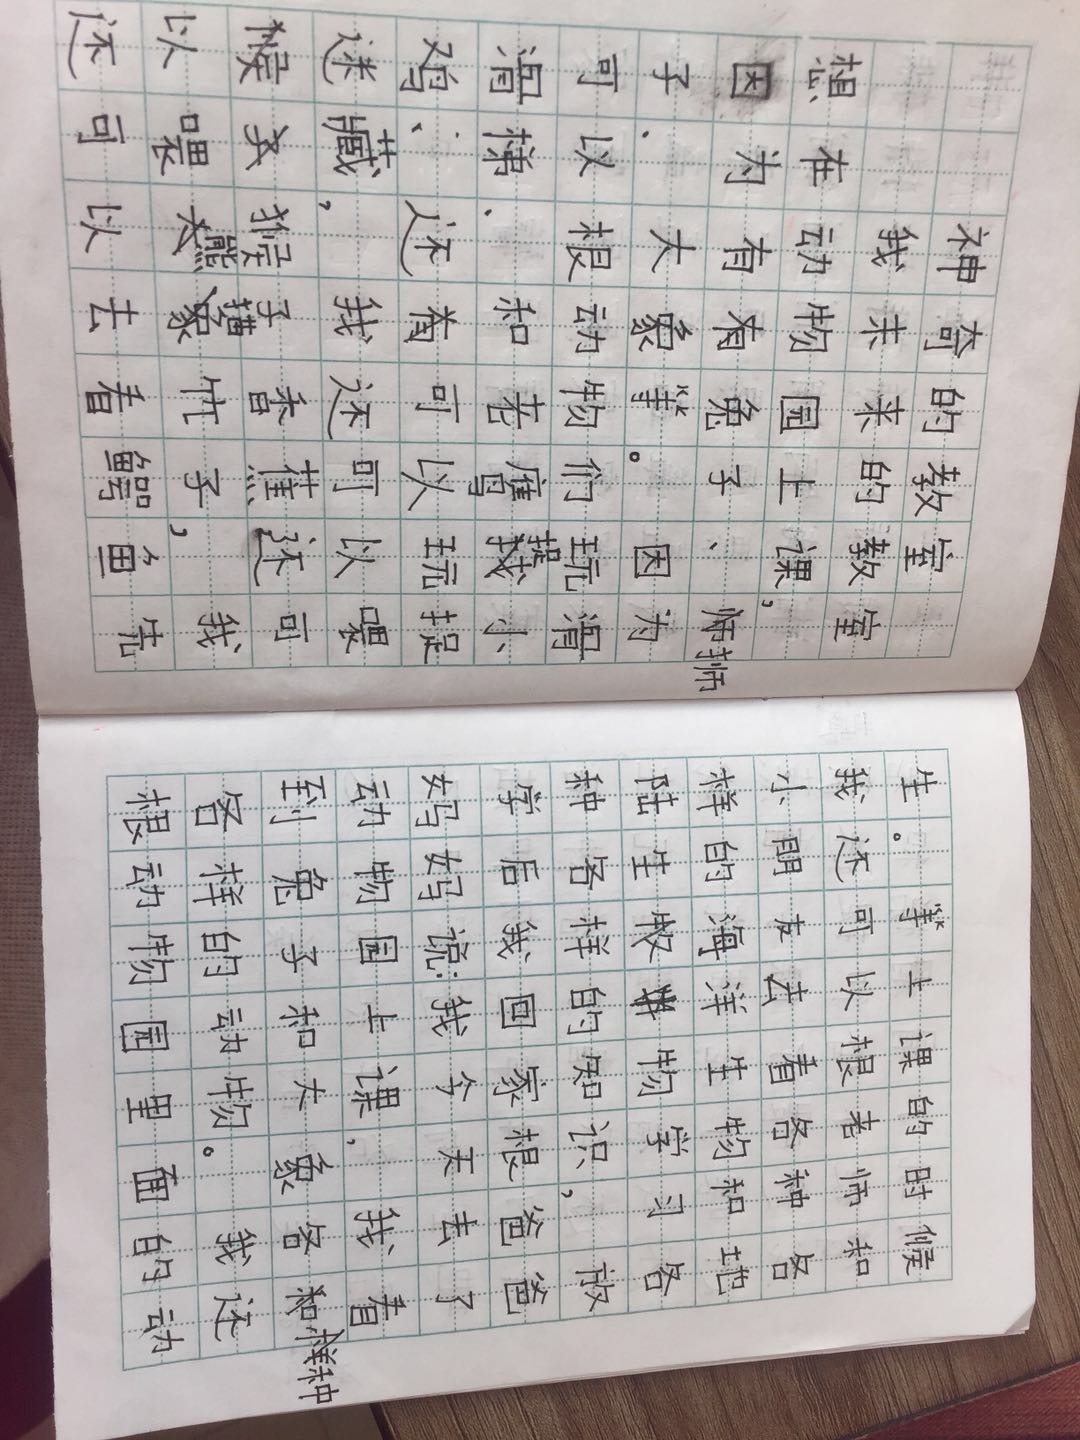 神奇的教室
我未来的教室
想在动物园上课，
因为有有兔子、狮
子、大象等。因为
可以根动物们玩滑
滑梯、和老鹰捉小
鸡、还有可以玩捉
迷藏，我还可以喂
猴子香蕉还可
以喂大熊猫竹子，我
还可以去看鳄鱼先
生。等上课的时候
我还可以根老师和
小朋友去看各种各
样的海洋生物和地
陆生物学习各
种各样的知识，放
学后我回家根爸爸
妈妈说:我今天去了
动物园上课，我看
到兔子和大象各种
各样的动物。我还
根动物园里面的动